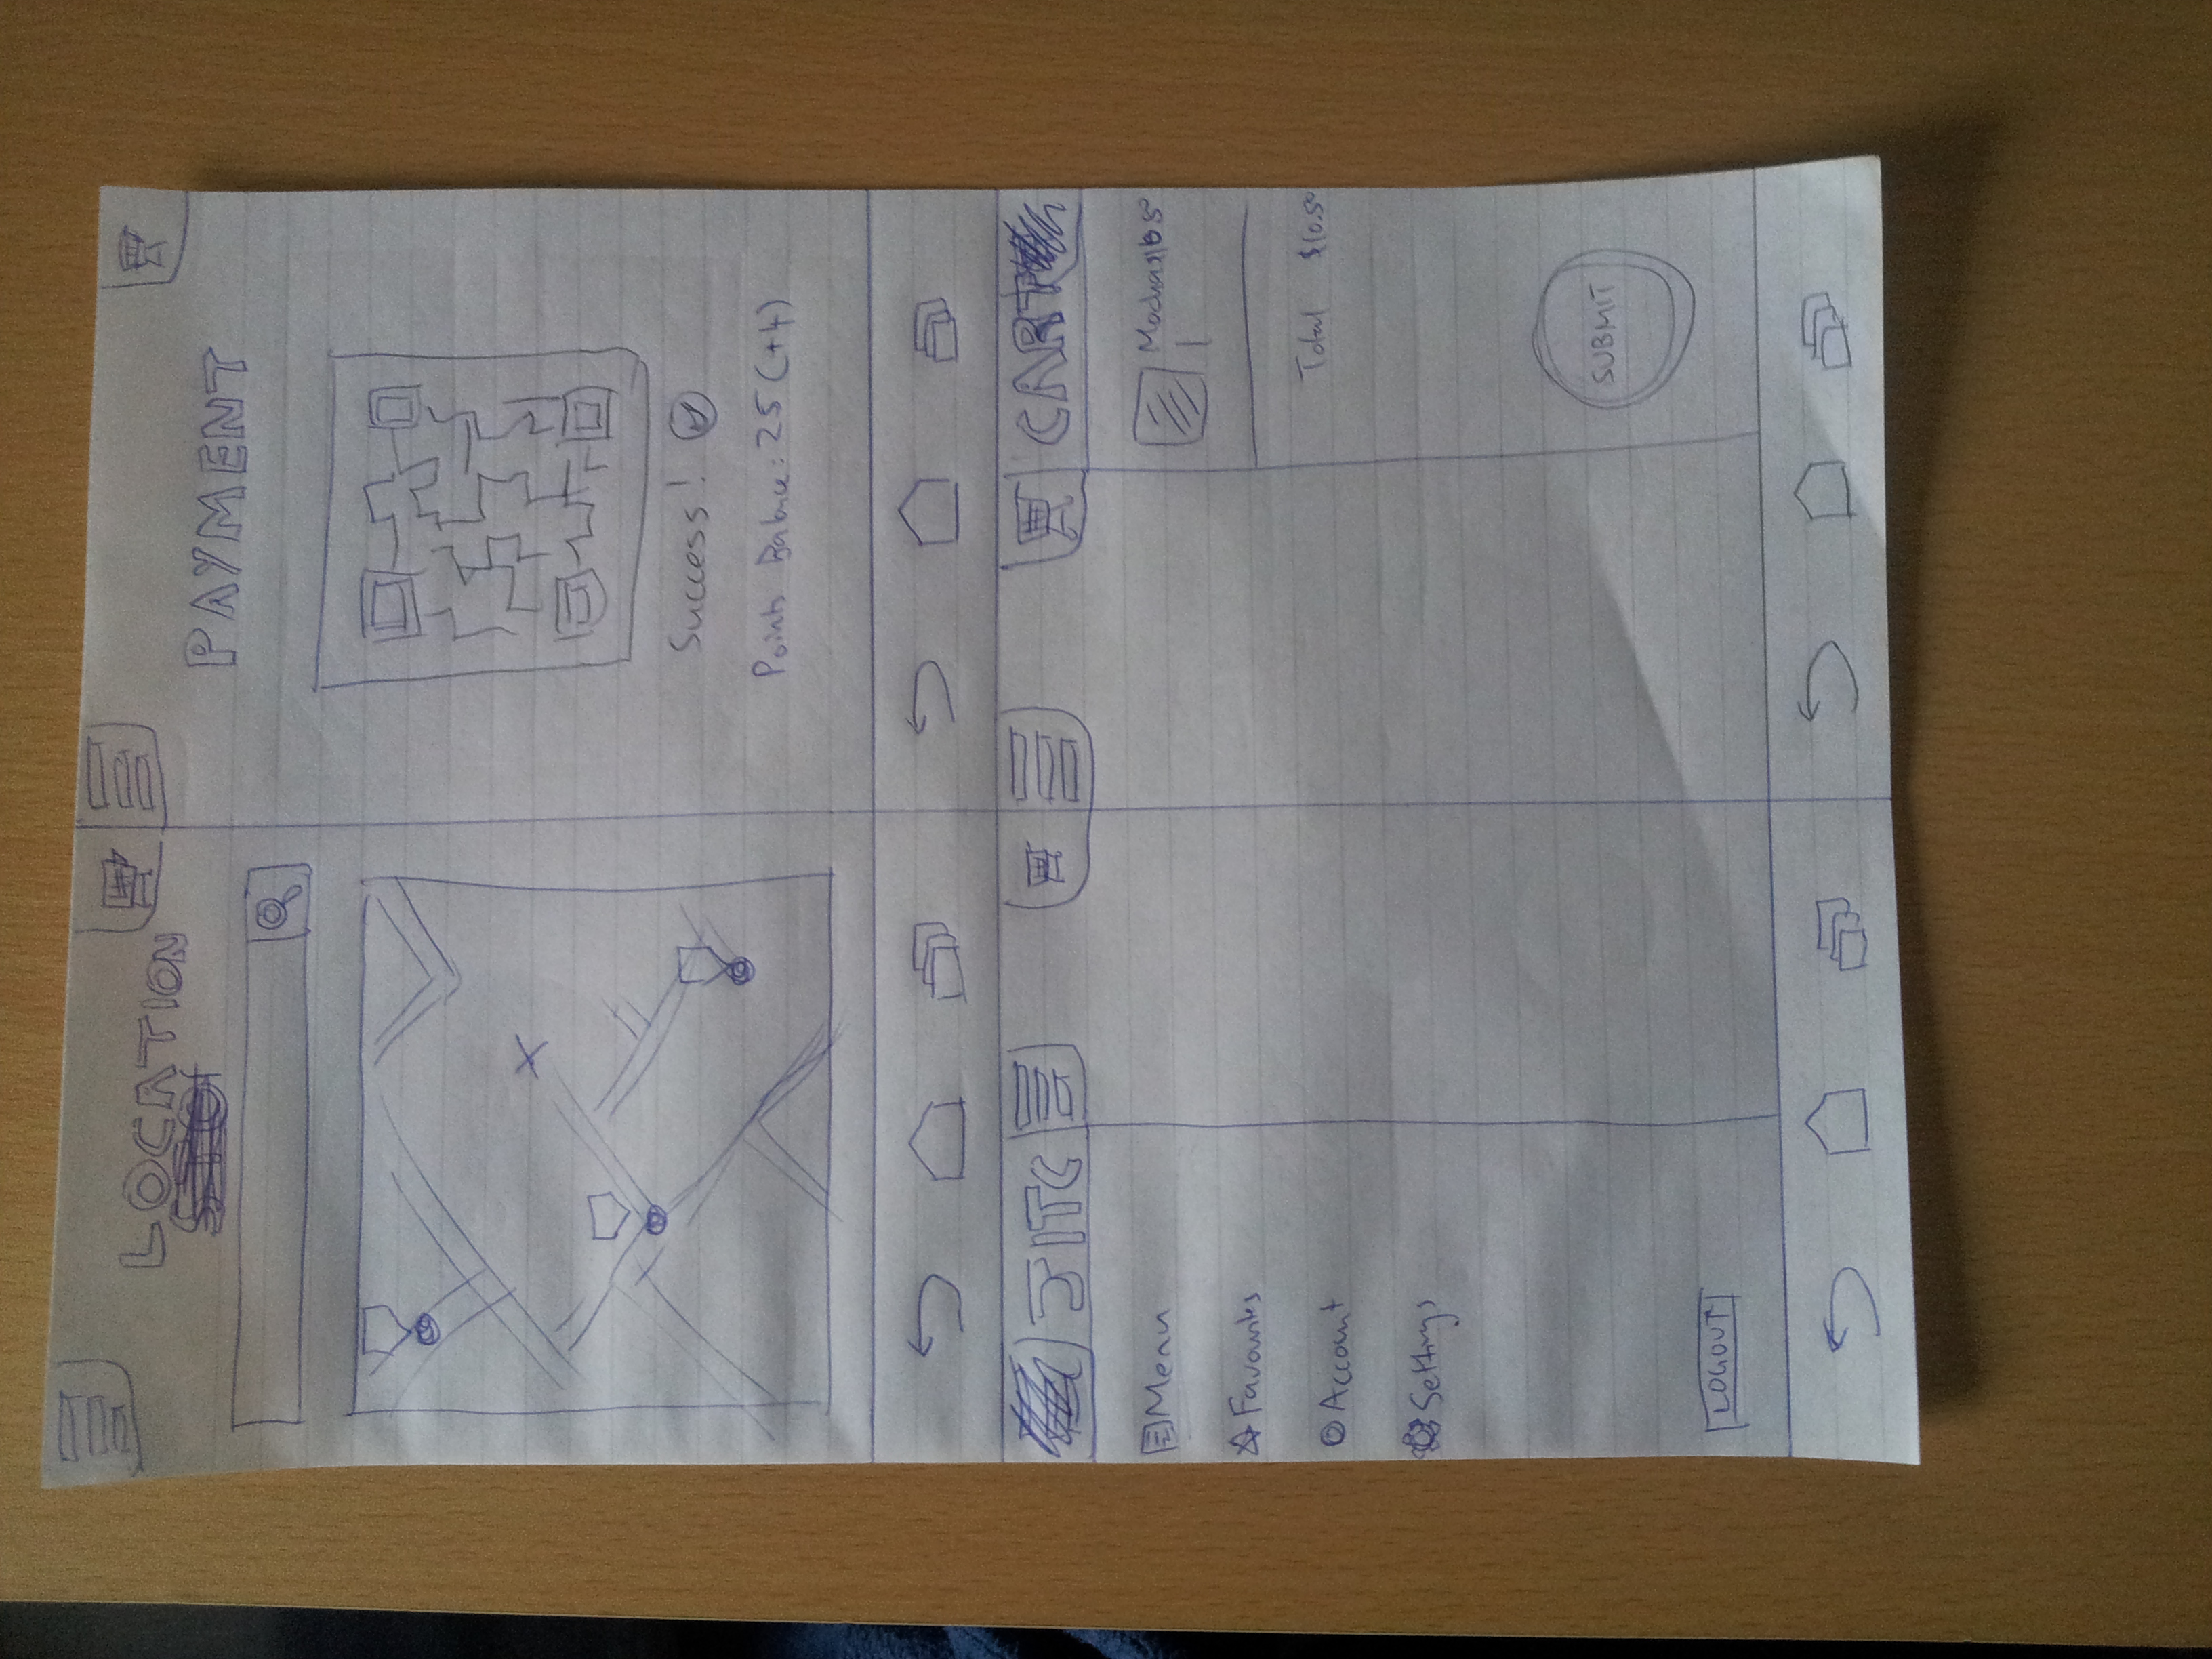 LOCATION
PAYMENT
Success!
Points Balance: 25 (+4)
JITC
Menu
Favourites
Account
Settings
LOGOUT
CART
Mocha
1
Total $10.50
SUBMIT